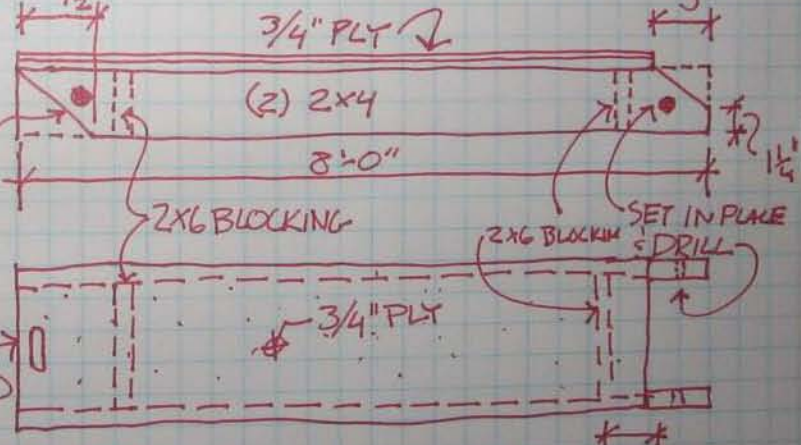 3/4" PLY
(2) 2x4
8'-0"
1 1/4"
2X6 BLOCKING
2X6 BLOCKIN
SET IN PLACE
& DRILL
3/4" PLY